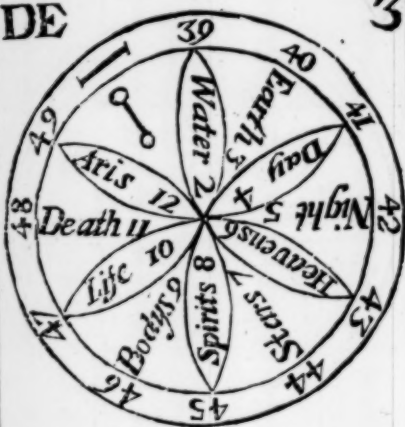 DE 3
39
40
41
42
43
44
45
46
47
48
49
Water 2
Earth 3
Day 4
Night 5
Heavens 6
Stars 7
Spirits 8
Bodyes 9
Life 10
Death 11
Aris 12